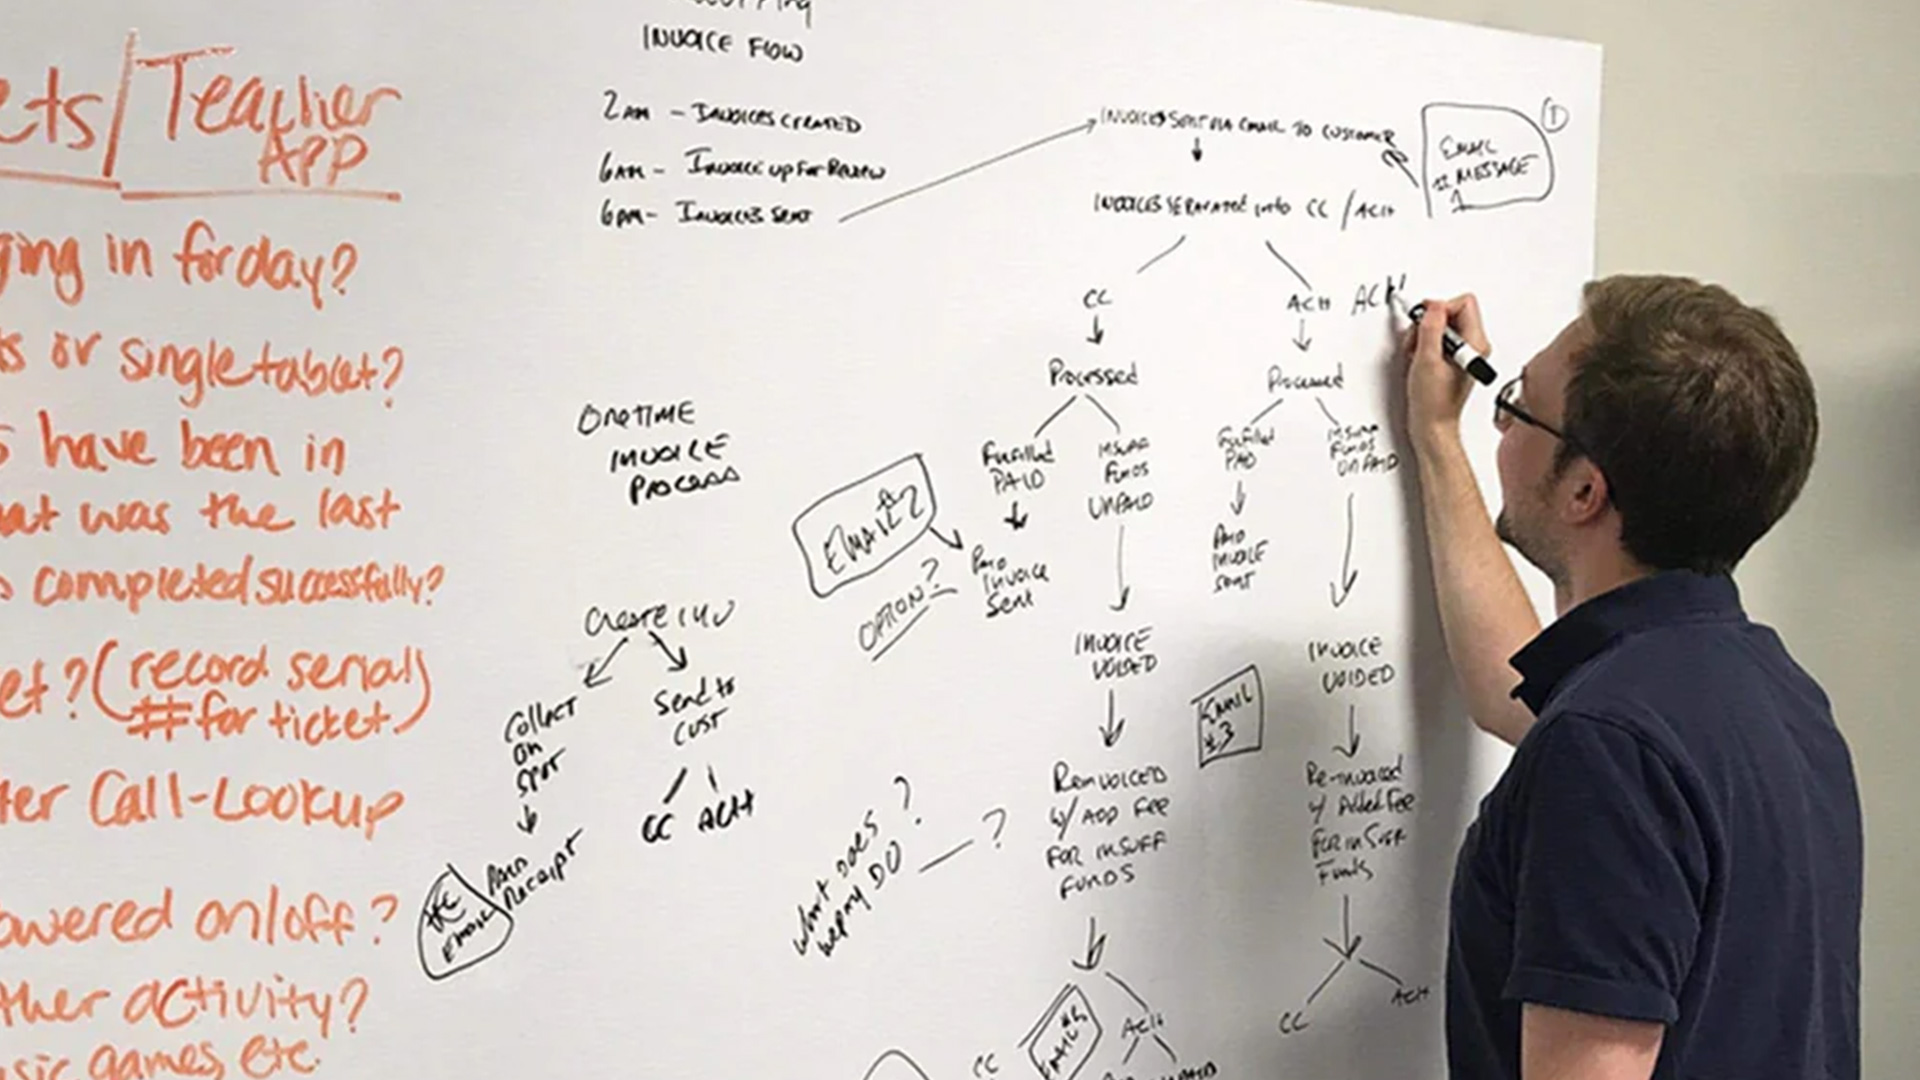 Teacher
APP
in for day?
or single tablet?
have been in
was the last
completed successfully?
? (record serial
# for ticket)
Call-Lookup
on/off?
activity?
games, etc.
INVOICE FLOW
2AM - INVOICES CREATED
6AM - INVOICE UP FOR REVIEW
6PM - INVOICES SENT
INVOICES SENT VIA EMAIL TO CUSTOMER
EMAIL
MESSAGE
1
INVOICES SEPARATED INTO CC / ACH
CC
ACH
ACH
Processed
Processed
Fulfilled
PAID
INSUFF
FUNDS
UNPAID
Fulfilled
PAID
INSUFF
FUNDS
UNPAID
EMAIL #2
OPTION?
PAID
INVOICE
Sent
PAID
INVOICE
SENT
INVOICE
VOIDED
INVOICE
VOIDED
EMAIL
#3
Reinvoiced
w/ ADD FEE
FOR INSUFF
FUNDS
Re-invoiced
w/ Added Fee
FOR INSUFF
Funds
CC
ACH
CC
ACH
ONE TIME
INVOICE
PROCESS
Create INV
Collect
on
SPOT
Send to
CUST
CC
ACH
PAID
Receipt
EMAIL
What DOES ?
DO
?